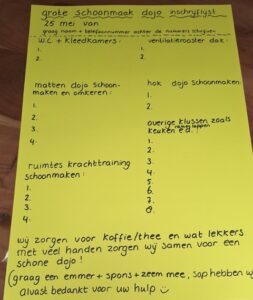 grote schoonmaak dojo inschrijflijst
25 mei van
graag naam + telefoonnummer achter de nummers schrijven
W.C. + kleedkamers:
1.
2.
ventilatierooster dak:
1.
2.
matten dojo schoonmaken en omkeren:
1.
2.
3.
4.
hok dojo schoonmaken:
1.
2.
overige klussen zoals
keuken e.d.
1.
2.
3.
4.
5.
6.
7.
8.
ruimtes krachttraining
schoonmaken:
1.
2.
3.
4.
wij zorgen voor koffie/thee en wat lekkers
met veel handen zorgen wij samen voor een
schone dojo!
(graag een emmer + spons + zeem mee, sop hebben w
alvast bedankt voor uw hulp